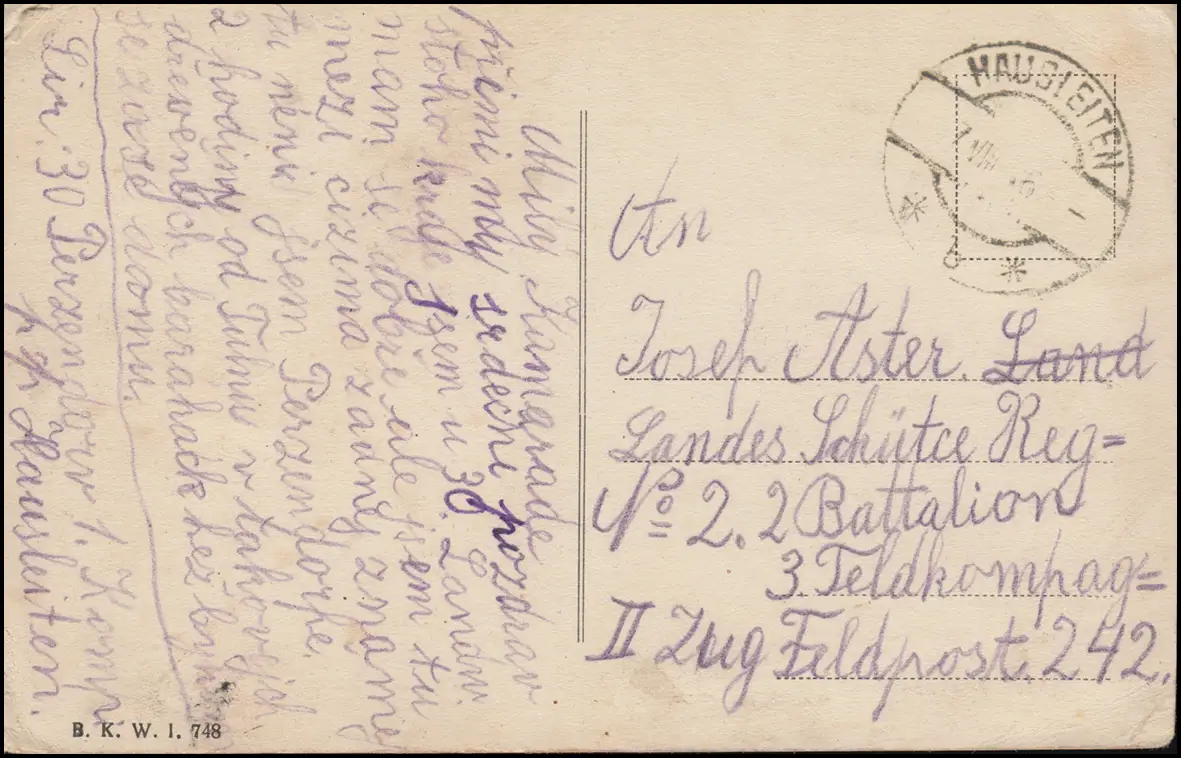 Milý Kamarade
přimi mý srdečni pozdrav
stoho kraje Jsem u 30. Landw.
mam se dobře ale jsem tu
mezi cizima zadný známe
tu neni Jsem Perzendorfe.
2 hodiny od Tulnu v takovejch
drevenejch barahach bez
se zase domu.
Lir: 30 Perzendorf 1. Komp
p. p. Hausleiten.
B. K. W. I. 748
HAUSLEITEN
VIII 16
An
Josef Aster. Land
Landes Schütce Reg=
No 2. 2 Battalion
3. Feldkompag=
II Zug Feldpost. 242.